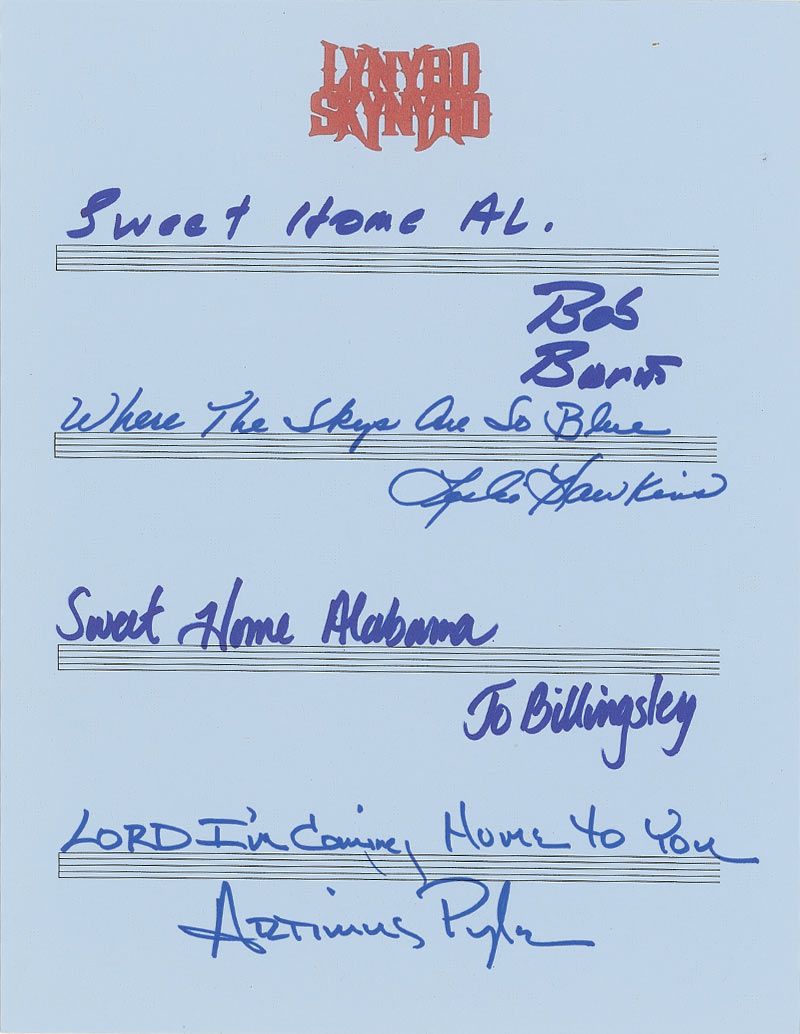 LYNYRD
SKYNYRD
Sweet Home AL.
Bob
Burns
Where The Skys Are So Blue
Leslie Hawkins
Sweet Home Alabama
Jo Billingsley
LORD I'm Coming Home to You
Artimus Pyle